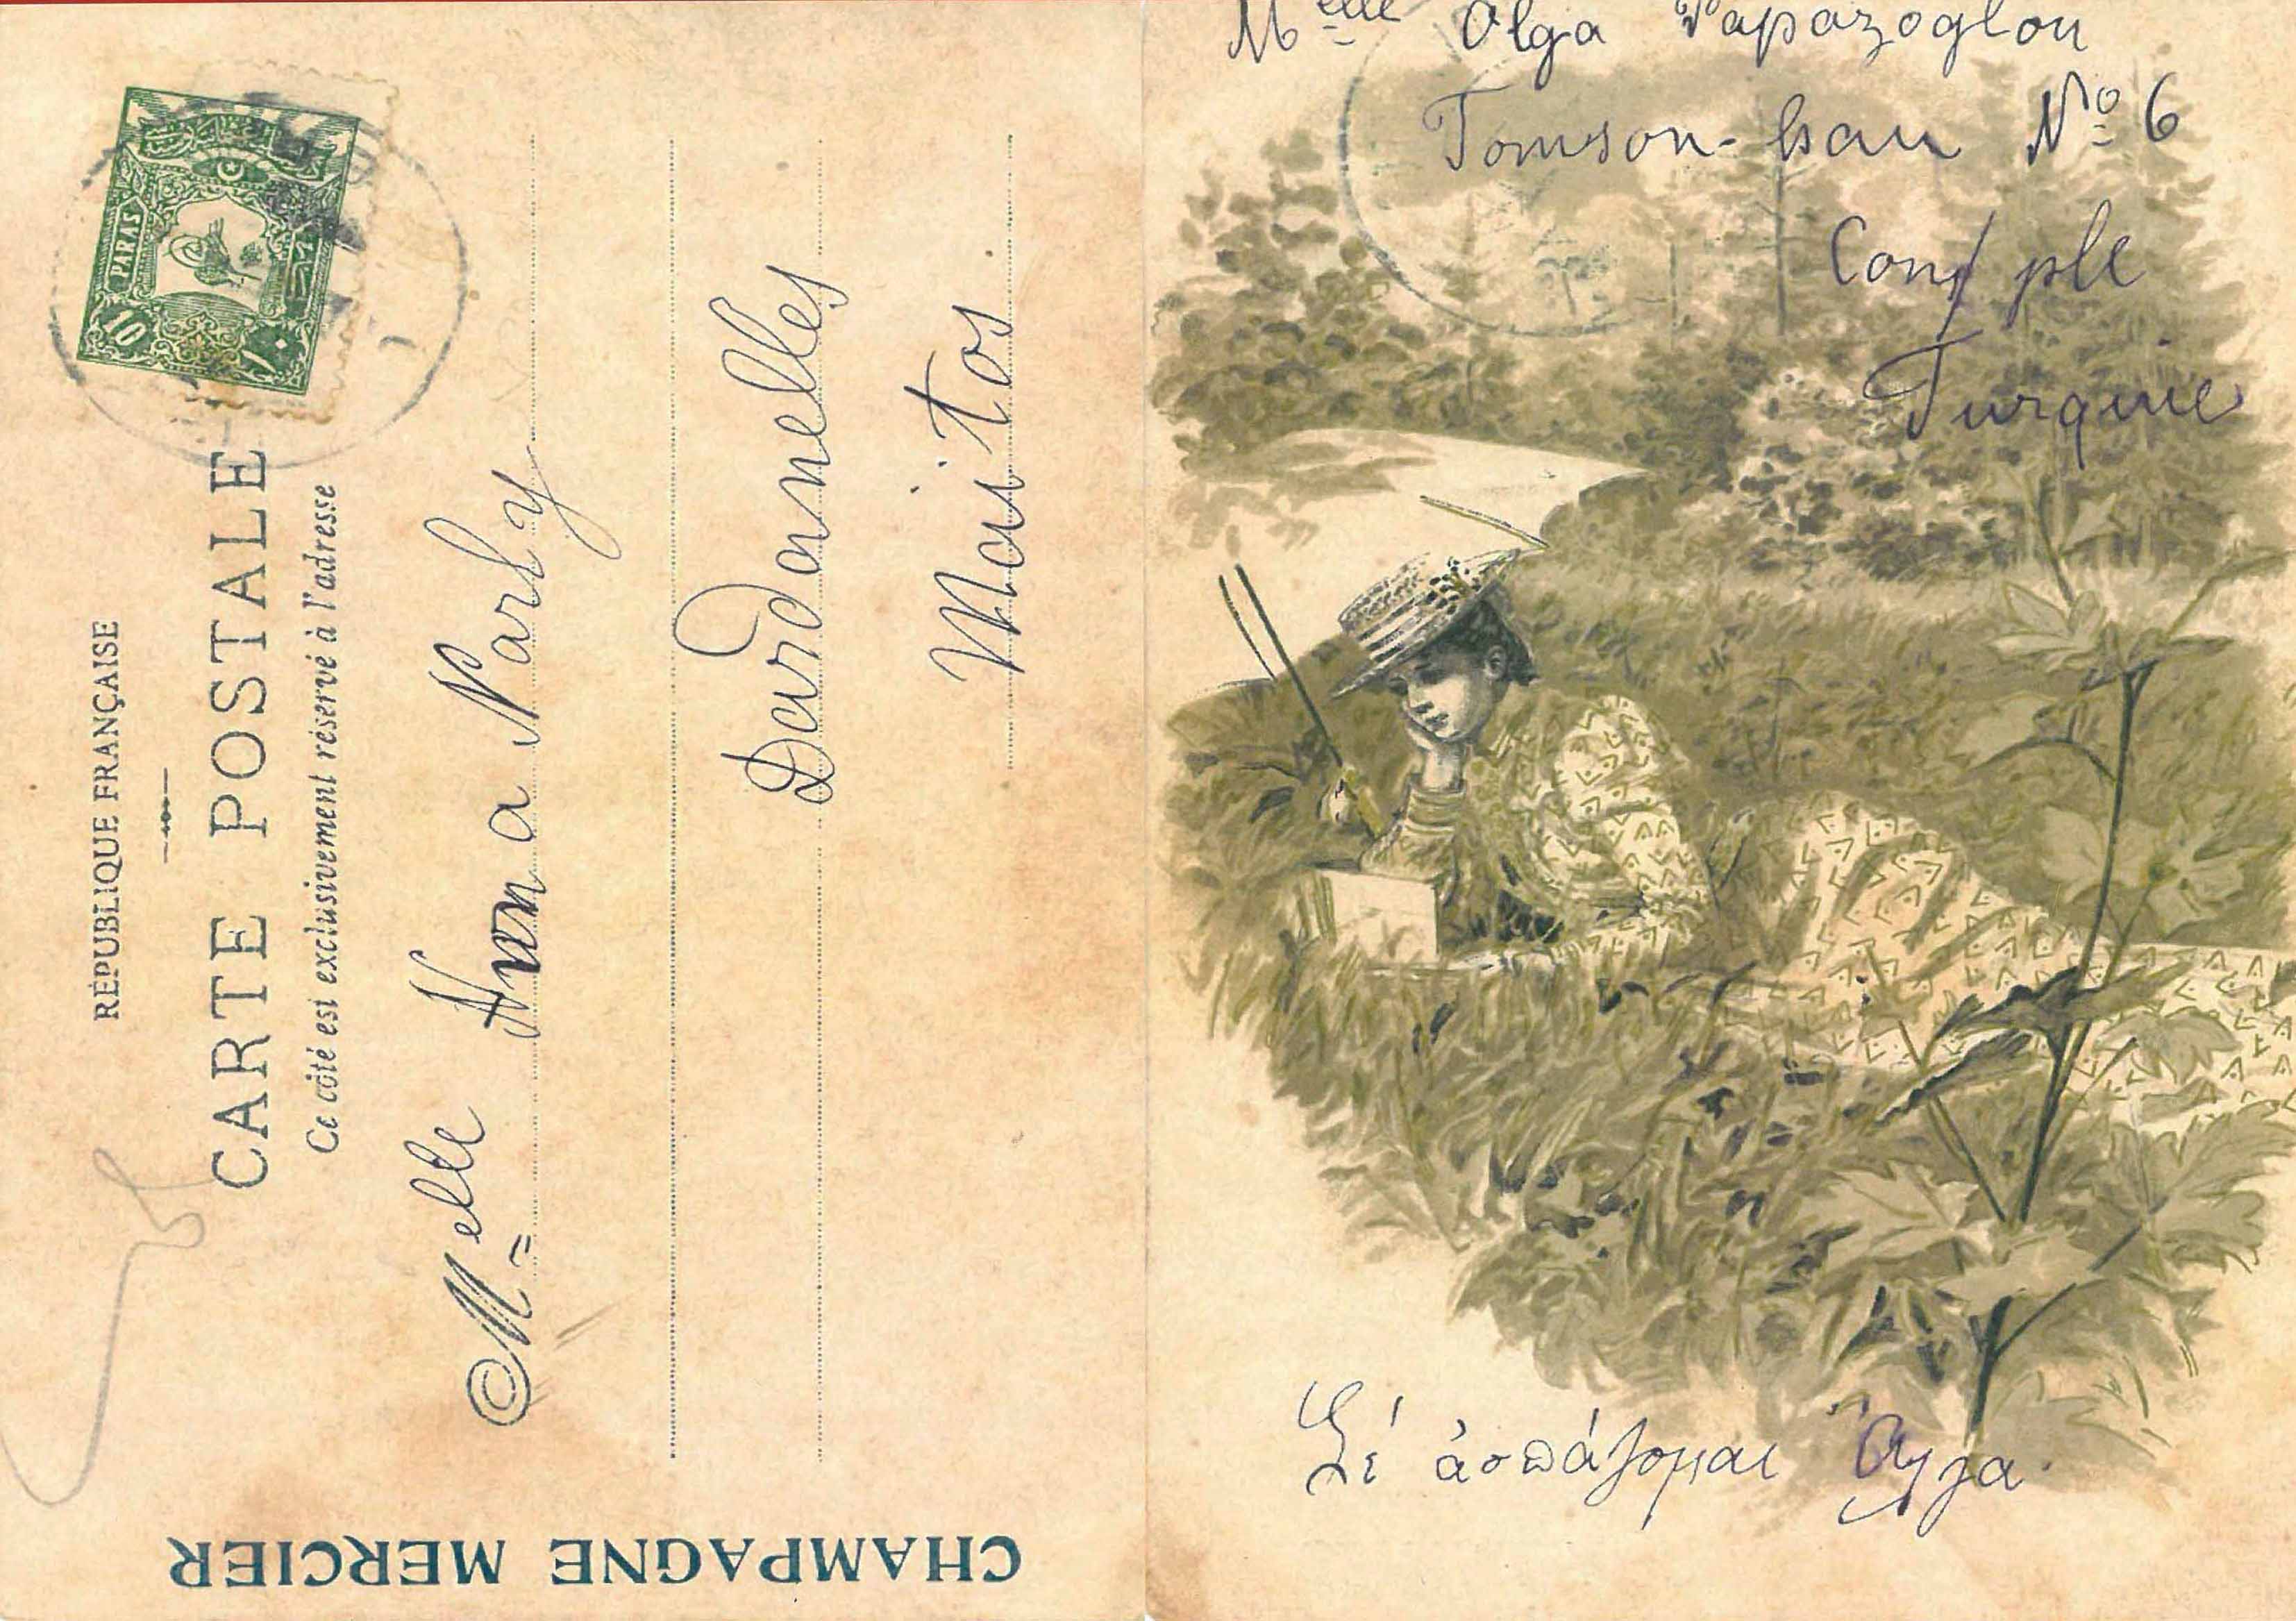 RÉPUBLIQUE FRANÇAISE
CARTE POSTALE
Ce côté est exclusivement réservé à l'adresse
PARAS
10
١٠
Melle Anna Narly
Dardanelles
Maitos
CHAMPAGNE MERCIER
Melle Olga Papazoglou
Tomson-han No 6
Cons/ple
Turquie
Σέ ἀσπάζομαι Ὄλγα.